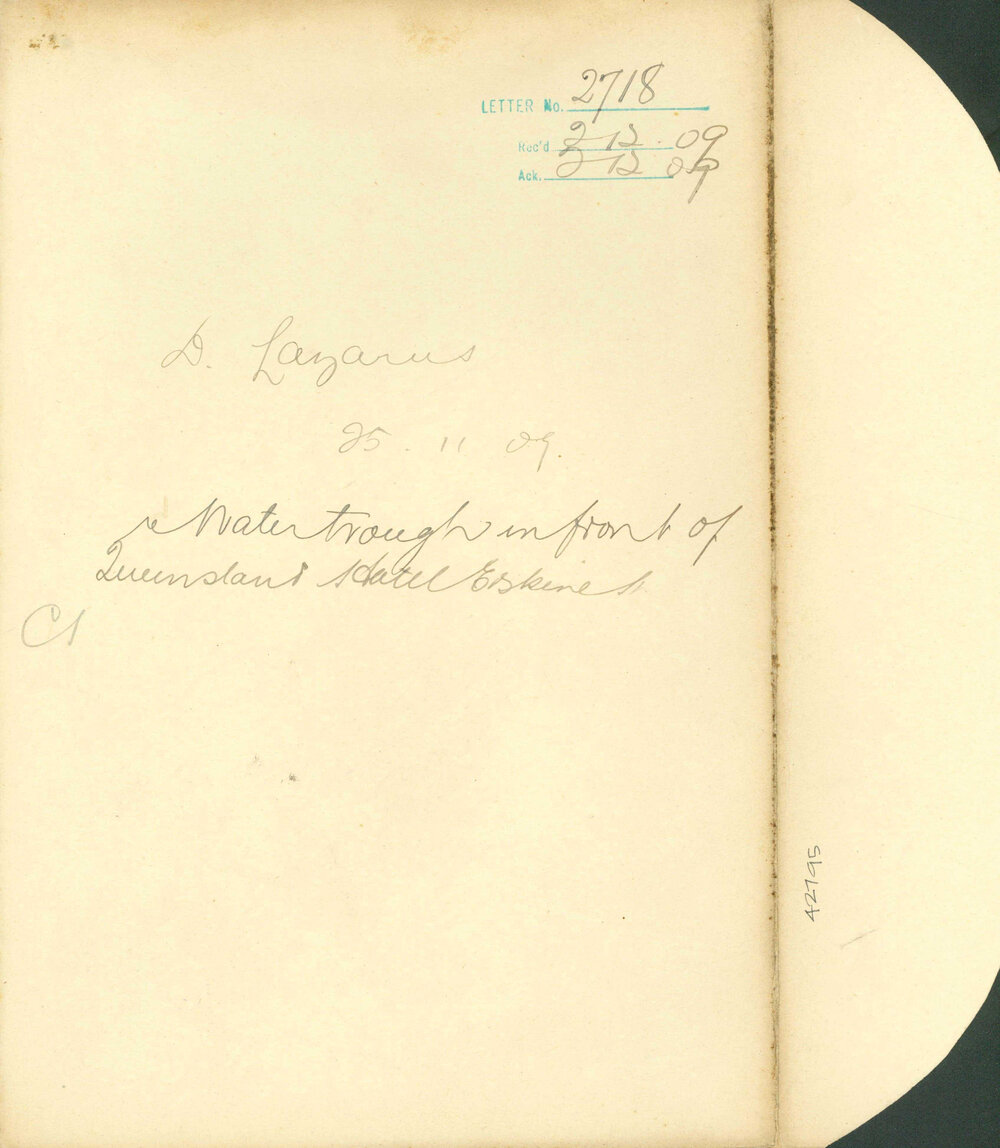 LETTER No. 2718
Rec'd 2 12 . 09
Ack. 2 12 09
D. Lazarus
25 . 11 09.
re Water trough in front of
Queensland Hotel Erskine St
42795